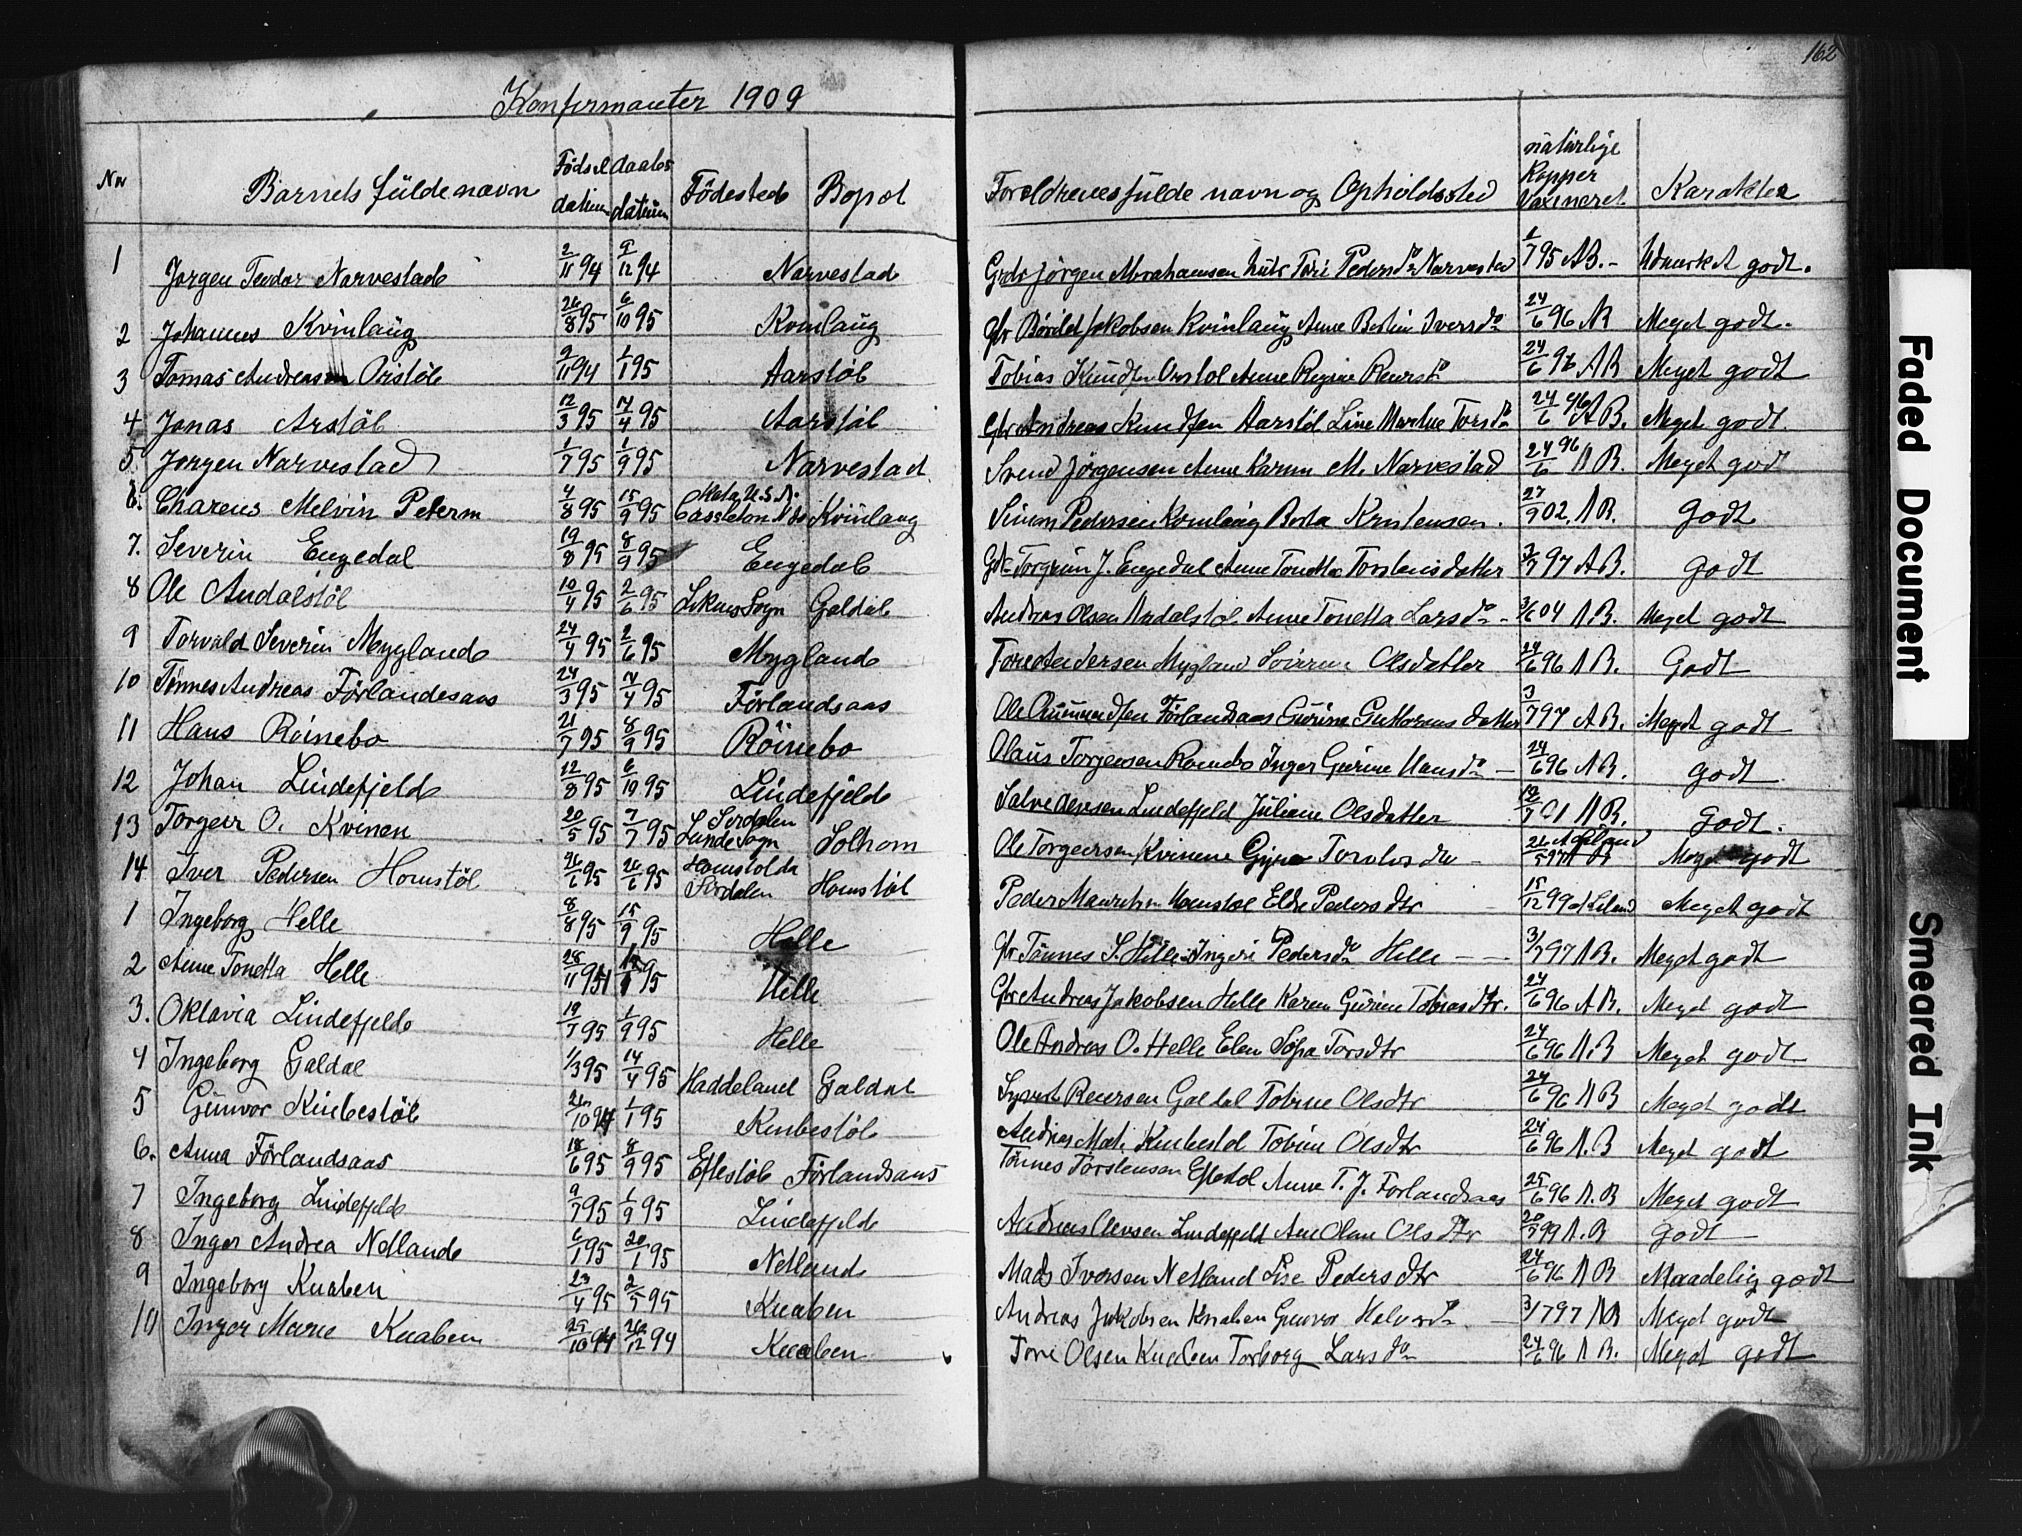 162
Konfirmanter 1909
Nr Barnets fülde navn Födsel datum daabs datum Födested Bopæl Foreldrenes fülde navn og Opholdssted natürlige Kopper Vaxineret Karakter
1 Jørgen Teodor Narvestad 2/11 94 9/12 94 Narvestad Jörgen Abrahamsen Peders Narvestad 795 AB. Udmerket godt.
2 Johannes Kvinlaüg 26/8 95 6/10 95 Kvinlaüg Jakobsen Kvinlaüg Anne 24/6 96 AB Meget godt.
3 Tomas Andreasen Orstöl 2/11 94 1/1 95 Aarstöl Tobias Knüdsen Orstöl Anne Regine 24/6 96 AB Meget godt
4 Jonas Arstöl 12/3 95 4/4 95 Aarstöl Andreas Knudsen Aarstöl Line Torsd 24/6 96 AB. Meget godt.
5. Jørgen Narvestad 1/7 95 1/9 95 Narvestad Svend Jørgensen Anne Karen M. Narvestad 24/6 96 AB. Meget godt
6. Melvin Petersen 4/8 95 15/9 95 Casselton U.S.A. Kvinlaug Simon Pedersen Kvinlaüg Berta Kristensen. 27/9 02 AB. Godt
7. Severin Engedal 19/8 95 8/9 95 Engedal Torgrim J. Engedal Anne Tonetta Torstensdatter 3/7 97 AB. Godt
8 Ole Andalstöl 10/4 95 2/6 95 Sogn Galdal Andreas Olsen Andalstöl Anne Tonetta Lars 3/6 04 AB. Meget godt
9 Torvald Severin Mygland 24/4 95 2/6 95 Mygland Tore Andersen Mygland Olsdatter 24/6 96 AB. Godt
10 Tønnes Andreas Førlandsaas 24/3 95 4/4 95 Førlandsaas Ole Førlandsaas Gürine Guttormsdatter 3/7 97 AB. Meget godt
11 Hans Röinebo 21/7 95 8/9 95 Röinebo Olaüs Torgersen Inger Gürine Hans 24/6 96 AB. godt
12 Johan Lindefjeld 12/8 95 6/10 95 Lindefjeld Salve Lindefjeld Jüliane Olsdatter 12/7 01 AB. Godt.
13 Torgeir O. Kvinen 20/5 95 7/7 95 Sirdalen Lunde Sogn Solhom Ole Torgersen Kvinene 26/5 97 Meget godt
14 Iver Pedersen Homstöl 26/6 95 Sirdalen Homstöl Peder Homstøl Pedersdtr 15/12 99 Meget godt
1 Ingeborg Helle 8/8 95 15/9 95 Helle Tönnes S. Helle Ingeri Peders Helle 3/7 97 AB. Meget godt
2 Anne Tonetta Helle 28/11 94 95 Helle Andreas Jakobsen Helle Karen Gürine Tobiasdtr. 24/6 96 AB. Meget godt
3. Oktavia Lindefjeld 19/7 95 1/9 95 Helle Ole Andreas O. Helle Elen Sofia Torsdtr 24/6 96 AB Meget godt
4 Ingeborg Galdal 1/3 95 14/4 95 Haddeland Galdal Syvert Reiersen Galdal Tobine Olsdtr 24/6 96 AB Meget godt
5 Günvor Knibestöl 26/10 94 1/1 95 Knibestöl Andreas Knibestöl Tobine Olsdtr 24/6 96 A.B Meget godt
6. Anna Førlandsaas 18/6 95 8/9 95 Eftestöl Førlandsaas Tönnes Torstensen Eftestöl Anne T. J. Førlandsaas 25/6 96 A.B Meget godt
7 Ingeborg Lindefjeld 9/7 95 1/9 95 Lindefjeld Andreas Olensen Lindefjeld Ane Olsdtr 99 A.B Godt
8 Inger Andrea Netland 6/1 95 20/1 95 Netland Mads Iversen Netland Lise Pedersdtr 24/6 96 AB Maadelig godt
9 Ingeborg Knaben 23/4 95 2/5 95 Knaben Andreas Jakobsen Knaben Gunvor 3/7 97 AB Meget godt
10 Inger Marie Knaben 29/10 94 26/12 94 Knaben Tore Olsen Knaben Torborg Lars 24/6 96 AB. Meget godt
Faded Document
Smeared Ink